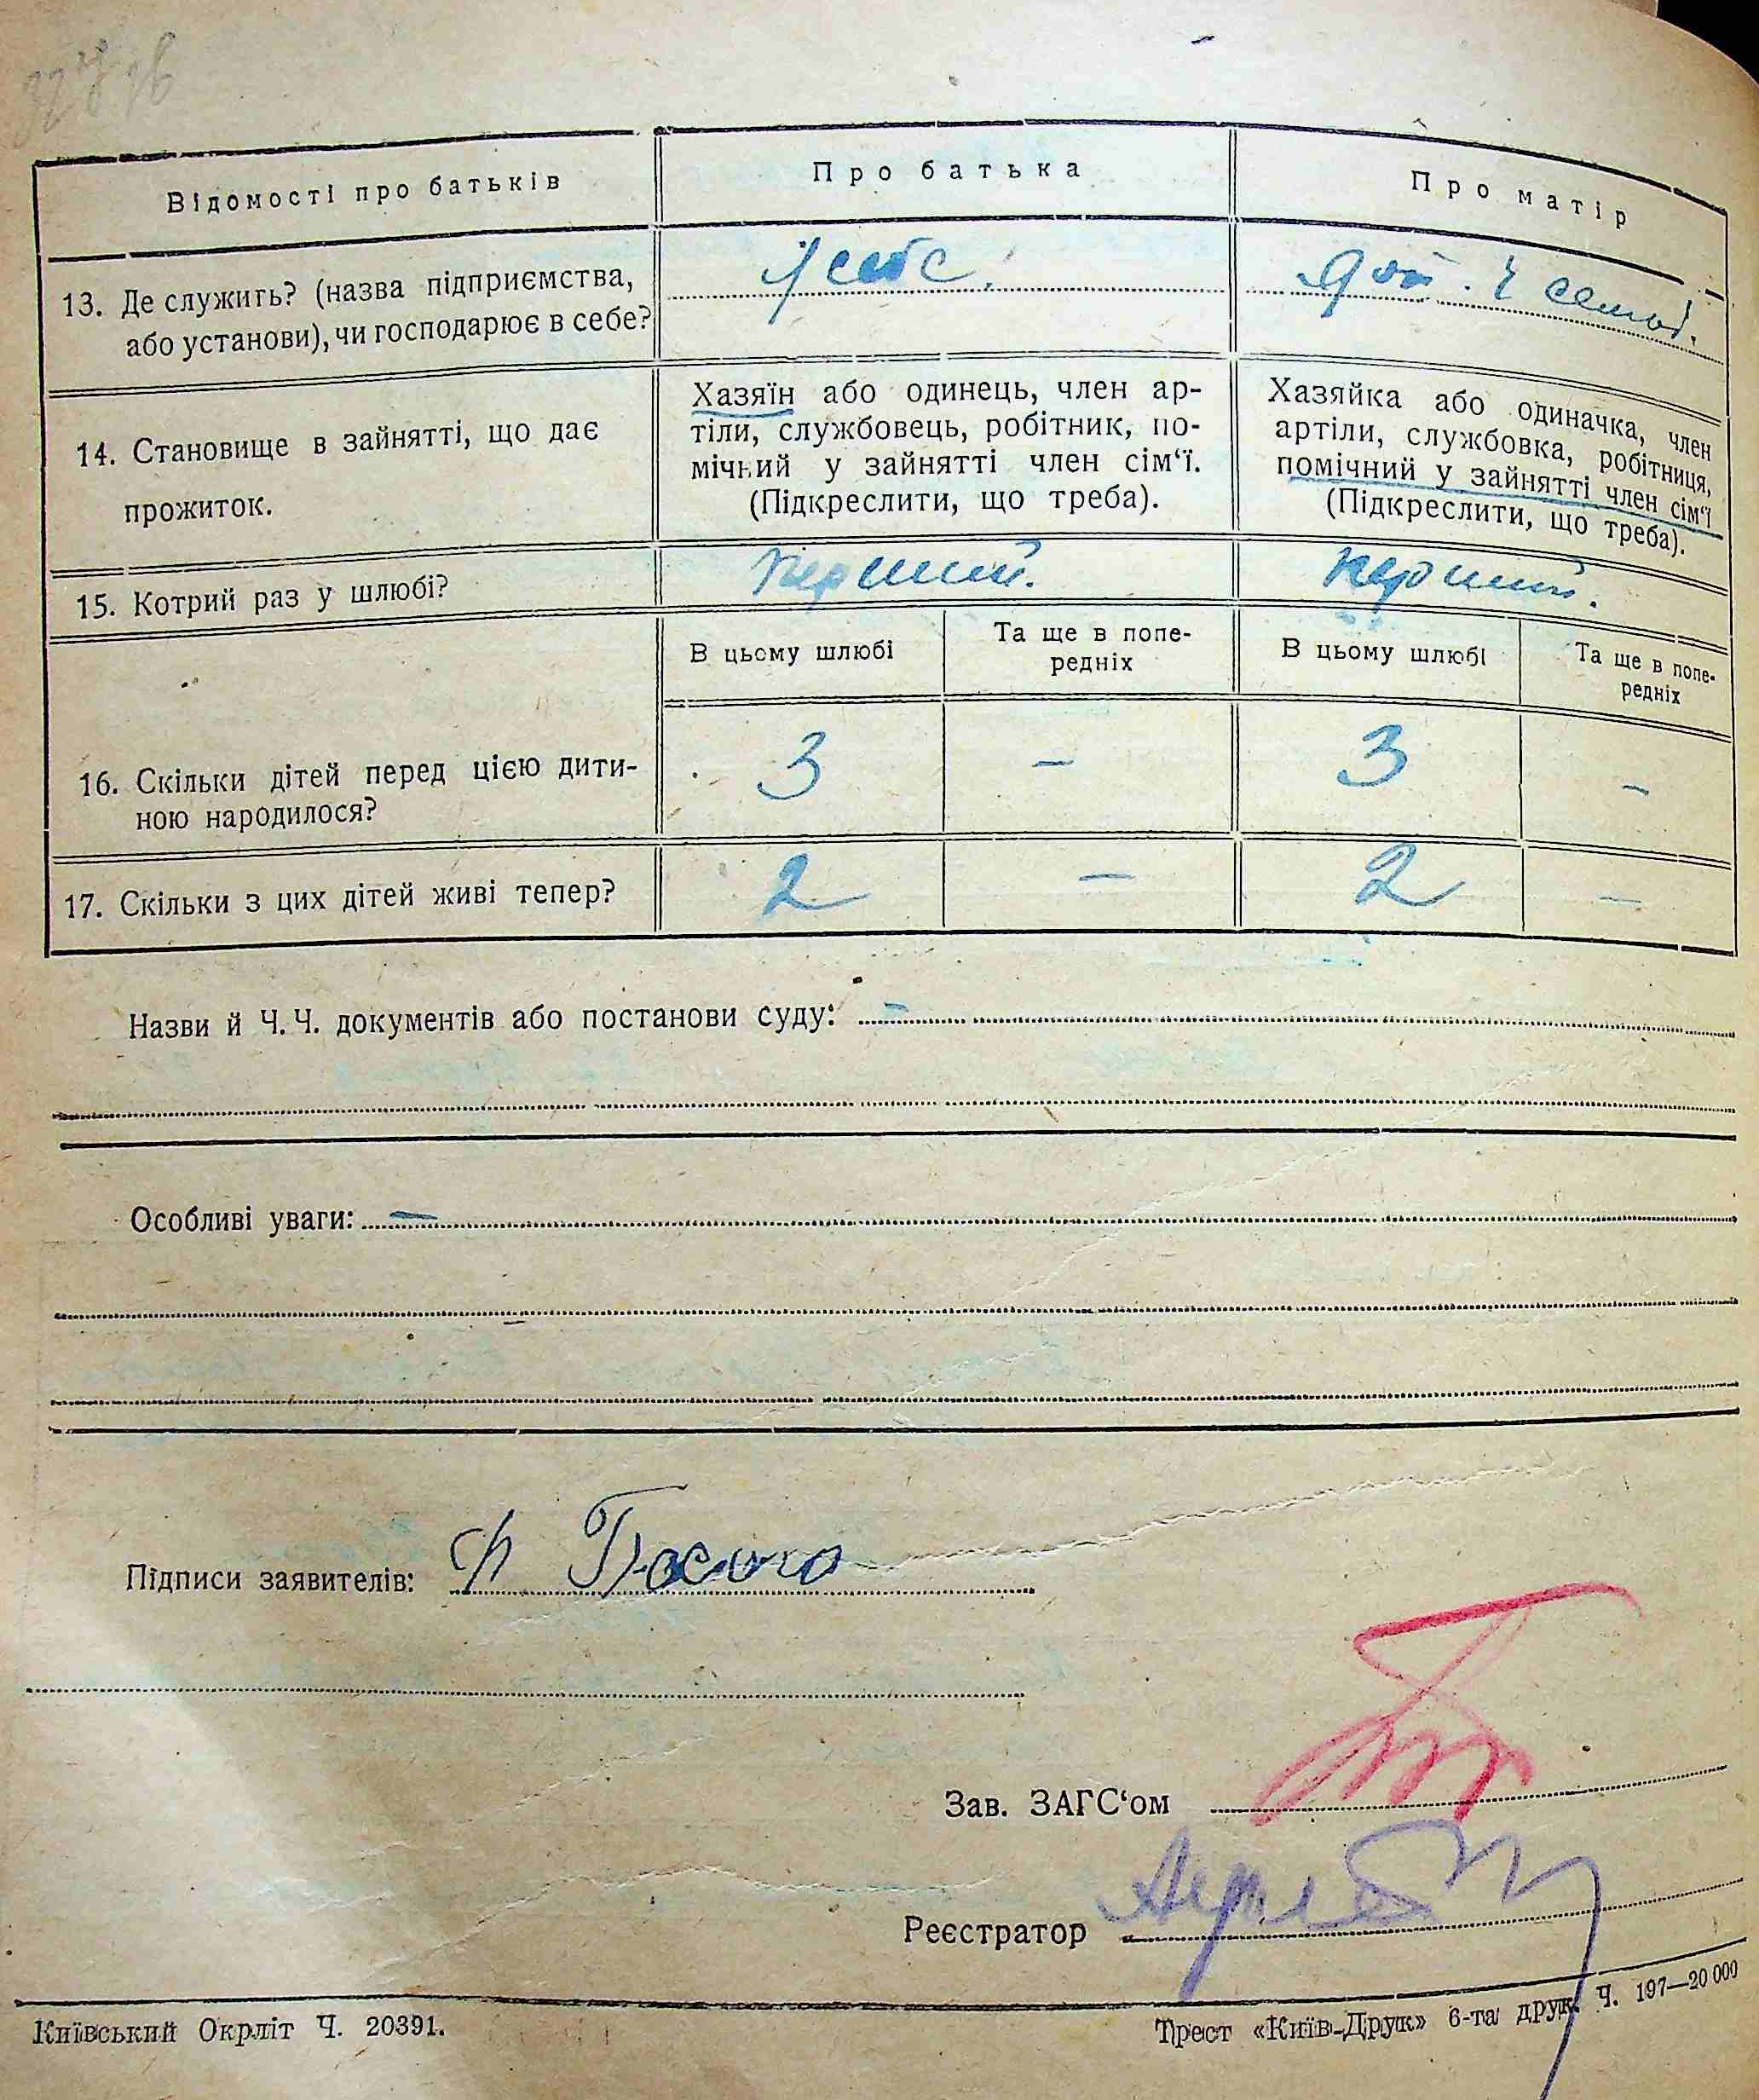 Відомості про батьків
Про батька
Про матір
13. Де служить? (назва підприємства,
або установи), чи господарює в себе?
У себе.
14. Становище в зайнятті, що дає
прожиток.
Хазяїн або одинець, член ар-
тіли, службовець, робітник, по-
мічний у зайнятті член сім‘ї.
(Підкреслити, що треба).
Хазяйка або одиначка, член
артіли, службовка, робітниця,
помічний у зайнятті член сім‘ї
(Підкреслити, що треба).
15. Котрий раз у шлюбі?
Перший.
Перший.
В цьому шлюбі
Та ще в попе-
редніх
В цьому шлюбі
Та ще в попе-
редніх
16. Скільки дітей перед цією дити-
ною народилося?
3 — 3 —
17. Скільки з цих дітей живі тепер?
2 — 2 —
Назви й Ч. Ч. документів або постанови суду: —
Особливі уваги: —
Підписи заявителів:
Зав. ЗАГС‘ом
Реєстратор
Київський Окрліт Ч. 20391.
Трест «Київ-Друк» 6-та друк. Ч. 197—20 000